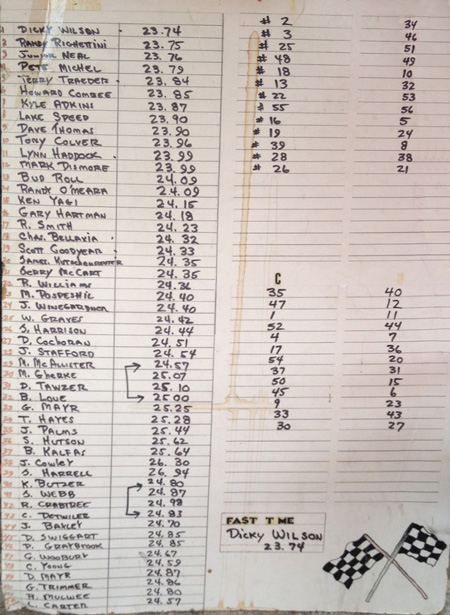 1 Dicky Wilson 23.74
2 Randy Righettini 23.75
3 Junior Neal 23.76
Pete Michel 23.79
Terry Traeder 23.84
Howard Combee 23.85
Kyle Adkins 23.87
Lake Speed 23.90
Dave Thomas 23.90
Tony Colver 23.96
11 Lynn Haddock 23.99
12 Mark Dismore 23.99
13 Bud Roll 24.09
14 Randy O'Meara 24.09
15 Ken Yagi 24.15
16 Gary Hartman 24.18
17 R. Smith 24.23
18 Chas. Bellavia 24.32
19 Scott Goodyear 24.33
24.35
Gerry McCart 24.35
R. Williams 24.36
M. Pospeshil 24.40
J. Winegardner 24.40
W. Graves 24.42
S. Harrison 24.44
D. Cochoran 24.51
J. Stafford 24.54
M. McAllister 24.57
M. Gherke 25.07
D. Tanzer 25.10
B. Love 25.00
G. Mayr 25.25
T. Hayes 25.28
J. Palms 25.44
S. Hutson 25.62
B. Kalfas 25.64
J. Cowley 26.30
S. Harrell 26.94
K. Butzer 24.80
S. Webb 24.87
R. Crabtree 24.98
C. Detwiler 24.83
J. Baxley 24.70
D. Swiggart 24.85
P. Graybrook 24.85
G. Woobury 24.67
C. Young 24.59
D. Mayr 24.87
G. Trimmer 24.86
H. Mulwee 24.80
L. Carter 24.57
# 2 34
# 3 46
# 25 51
# 48 49
# 18 10
# 13 32
# 22 53
# 55 56
# 16 5
# 19 24
# 39 8
# 28 38
# 26 21
C
35 40
47 12
1 11
52 44
4 7
17 36
54 20
37 31
50 15
45 6
9 23
33 43
30 27
FAST TIME
Dicky Wilson
23.74